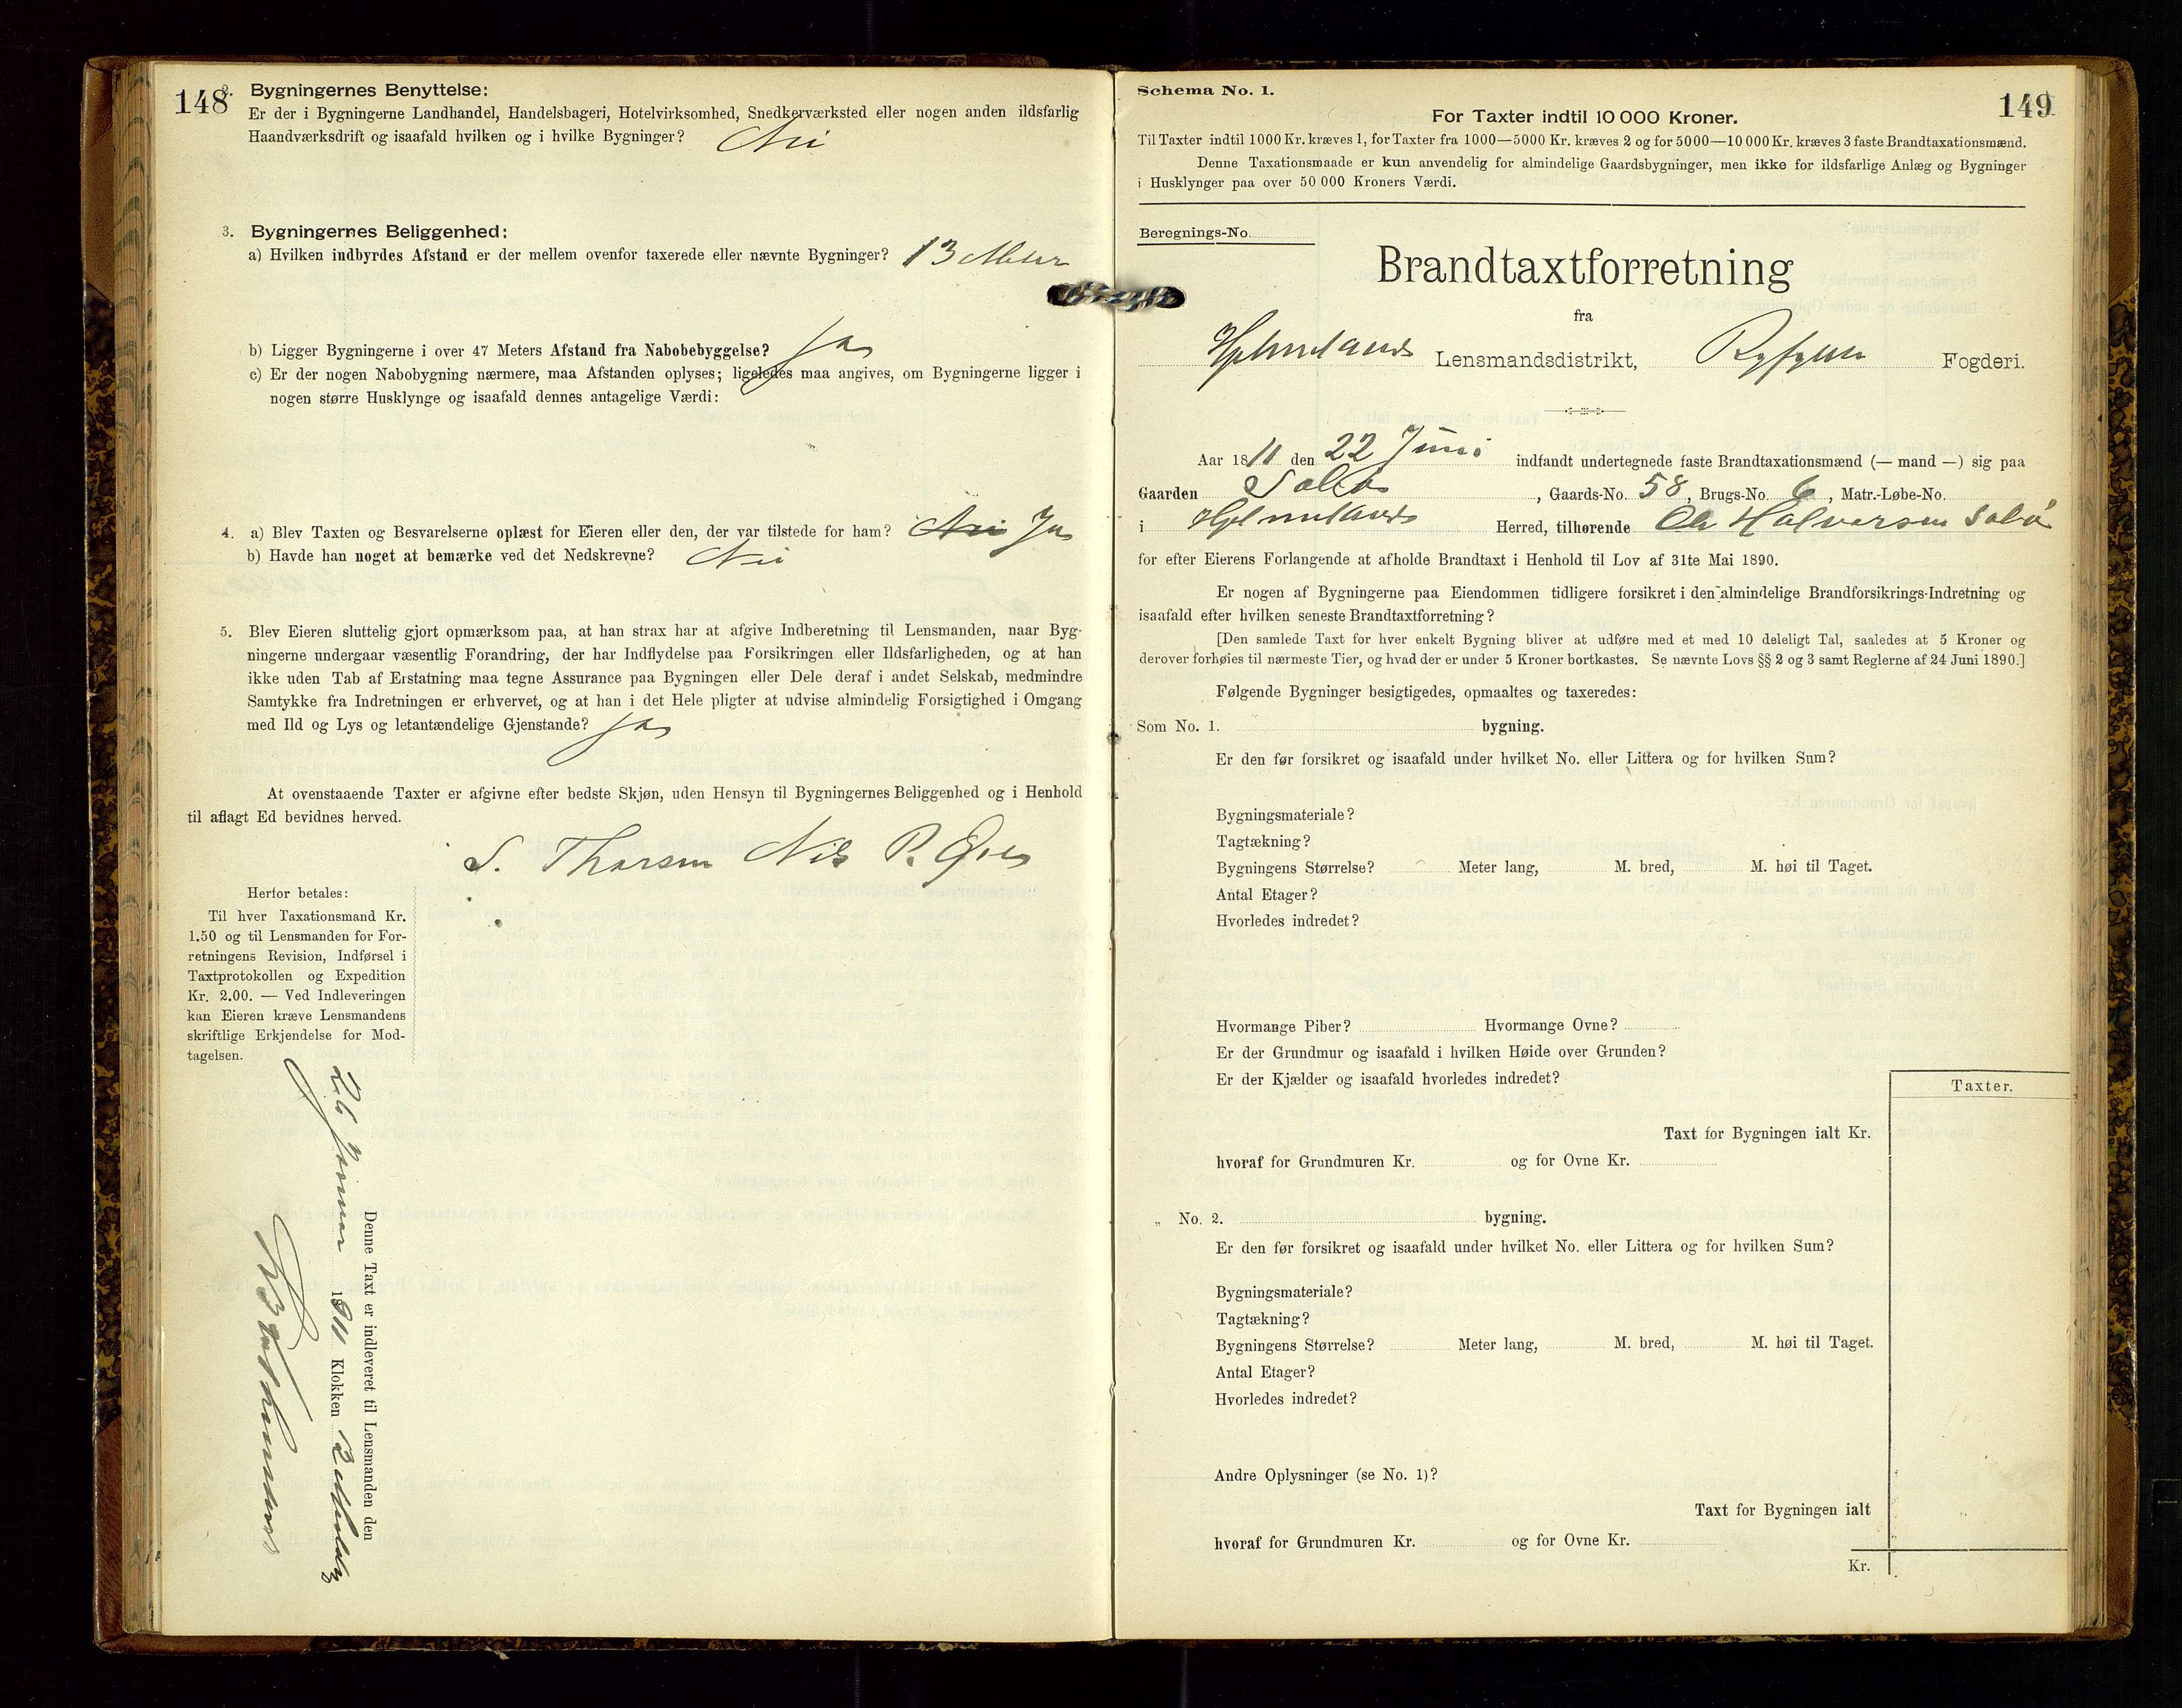 148
2. Bygningernes Benyttelse:
Er der i Bygningerne Landhandel, Handelsbageri, Hotelvirksomhed, Snedkerværksted eller nogen anden ildsfarlig
Haandværksdrift og isaafald hvilken og i hvilke Bygninger? Nei
3. Bygningernes Beliggenhed:
a) Hvilken indbyrdes Afstand er der mellem ovenfor taxerede eller nævnte Bygninger? 13 Meter
b) Ligger Bygningerne i over 47 Meters Afstand fra Nabobebyggelse? Ja
c) Er der nogen Nabobygning nærmere, maa Afstanden oplyses; ligeledes maa angives, om Bygningerne ligger i
nogen større Husklynge og isaafald dennes antagelige Værdi:
4. a) Blev Taxten og Besvarelserne oplæst for Eieren eller den, der var tilstede for ham? Nei Ja
b) Havde han noget at bemærke ved det Nedskrevne? Nei
5. Blev Eieren sluttelig gjort opmærksom paa, at han strax har at afgive Indberetning til Lensmanden, naar Byg-
ningerne undergaar væsentlig Forandring, der har Indflydelse paa Forsikringen eller Ildsfarligheden, og at han
ikke uden Tab af Erstatning maa tegne Assurance paa Bygningen eller Dele deraf i andet Selskab, medmindre
Samtykke fra Indretningen er erhvervet, og at han i det Hele pligter at udvise almindelig Forsigtighed i Omgang
med Ild og Lys og letantændelige Gjenstande? Ja
At ovenstaaende Taxter er afgivne efter bedste Skjøn, uden Hensyn til Bygningernes Beliggenhed og i Henhold
til aflagt Ed bevidnes herved.
S. Thorsen Nils P.
Herfor betales:
Til hver Taxationsmand Kr.
1.50 og til Lensmanden for For-
retningens Revision, Indførsel i
Taxtprotokollen og Expedition
Kr. 2.00. — Ved Indleveringen
kan Eieren kræve Lensmandens
skriftlige Erkjendelse for Mod-
tagelsen.
Denne Taxt er indleveret til Lensmanden den
26 Januar 1911 Klokken 12
149
Schema No. 1.
For Taxter indtil 10 000 Kroner.
Til Taxter indtil 1000 Kr. kræves 1, for Taxter fra 1000—5000 Kr. kræves 2 og for 5000—10 000 Kr. kræves 3 faste Brandtaxationsmænd.
Denne Taxationsmaade er kun anvendelig for almindelige Gaardsbygninger, men ikke for ildsfarlige Anlæg og Bygninger
i Husklynger paa over 50 000 Kroners Værdi.
Beregnings-No.
Brandtaxtforretning
fra
Hjelmelands Lensmandsdistrikt, Ryfylke Fogderi.
Aar 1811 den 22 Juni indfandt undertegnede faste Brandtaxationsmænd (— mand —) sig paa
Gaarden Salbø, Gaards-No. 58, Brugs-No. 6, Matr.-Løbe-No.
i Hjelmelands Herred, tilhørende Ole Halvorsen Salbø
for efter Eierens Forlangende at afholde Brandtaxt i Henhold til Lov af 31te Mai 1890.
Er nogen af Bygningerne paa Eiendommen tidligere forsikret i den almindelige Brandforsikrings-Indretning og
isaafald efter hvilken seneste Brandtaxtforretning?
[Den samlede Taxt for hver enkelt Bygning bliver at udføre med et med 10 deleligt Tal, saaledes at 5 Kroner og
derover forhøies til nærmeste Tier, og hvad der er under 5 Kroner bortkastes. Se nævnte Lovs §§ 2 og 3 samt Reglerne af 24 Juni 1890.]
Følgende Bygninger besigtigedes, opmaaltes og taxeredes:
Som No. 1. bygning.
Er den før forsikret og isaafald under hvilket No. eller Littera og for hvilken Sum?
Bygningsmateriale?
Tagtækning?
Bygningens Størrelse? Meter lang, M. bred, M. høi til Taget.
Antal Etager?
Hvorledes indredet?
Hvormange Piber? Hvormange Ovne?
Er der Grundmur og isaafald i hvilken Høide over Grunden?
Er der Kjælder og isaafald hvorledes indredet?
Taxter.
Taxt for Bygningen ialt Kr.
hvoraf for Grundmuren Kr. og for Ovne Kr.
„ No. 2. bygning.
Er den før forsikret og isaafald under hvilket No. eller Littera og for hvilken Sum?
Bygningsmateriale?
Tagtækning?
Bygningens Størrelse? Meter lang, M. bred, M. høi til Taget.
Antal Etager?
Hvorledes indredet?
Andre Oplysninger (se No. 1)?
Taxt for Bygningen ialt
hvoraf for Grundmuren Kr. og for Ovne Kr.
Kr.